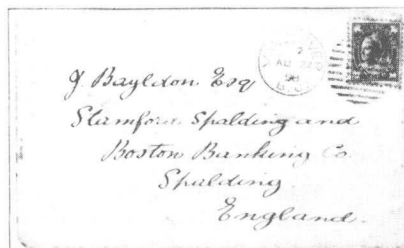 J. Bayldon Esq
Stamford Spalding and
Boston Banking Co
Spalding
England.
2
98
B.C.